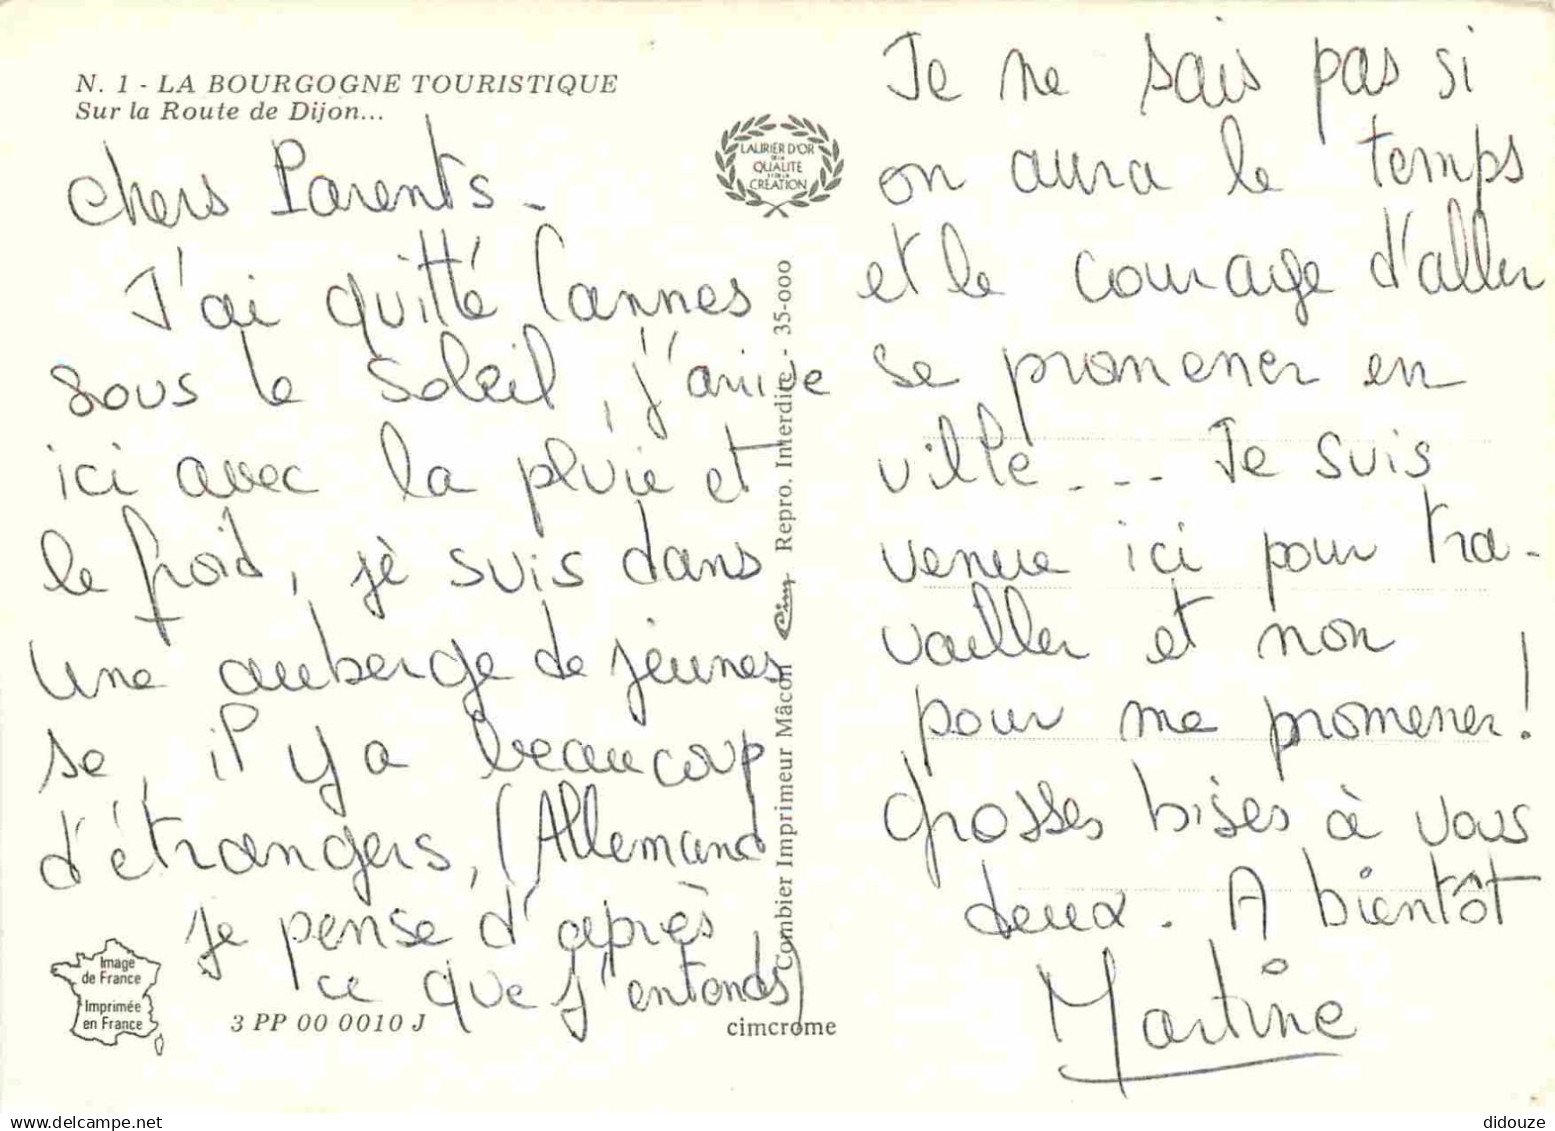 N. 1 - LA BOURGOGNE TOURISTIQUE
Sur la Route de Dijon...
Chers Parents -
J'ai quitté Cannes
sous le soleil, j'arrive
ici avec la pluie et
le froid, je suis dans
une auberge de jeunes
se, il y a beaucoup
d'étrangers, (Allemand
je pense d'après
ce que j'entends)
LAURIER D'OR
DE LA
QUALITE
ET DE LA
CRÉATION
Combier Imprimeur Mâcon Cim Repro. Interdite - 35-000
Je ne sais pas si
on aura le temps
et le courage d'aller
se promener en
ville - - - Je suis
venue ici pour tra-
vailler et non
pour me promener!
grosses bises à vous
deux. A bientôt
Martine
Image
de France
Imprimée
en France
3 PP 00 0010 J
cimcrome
didouze